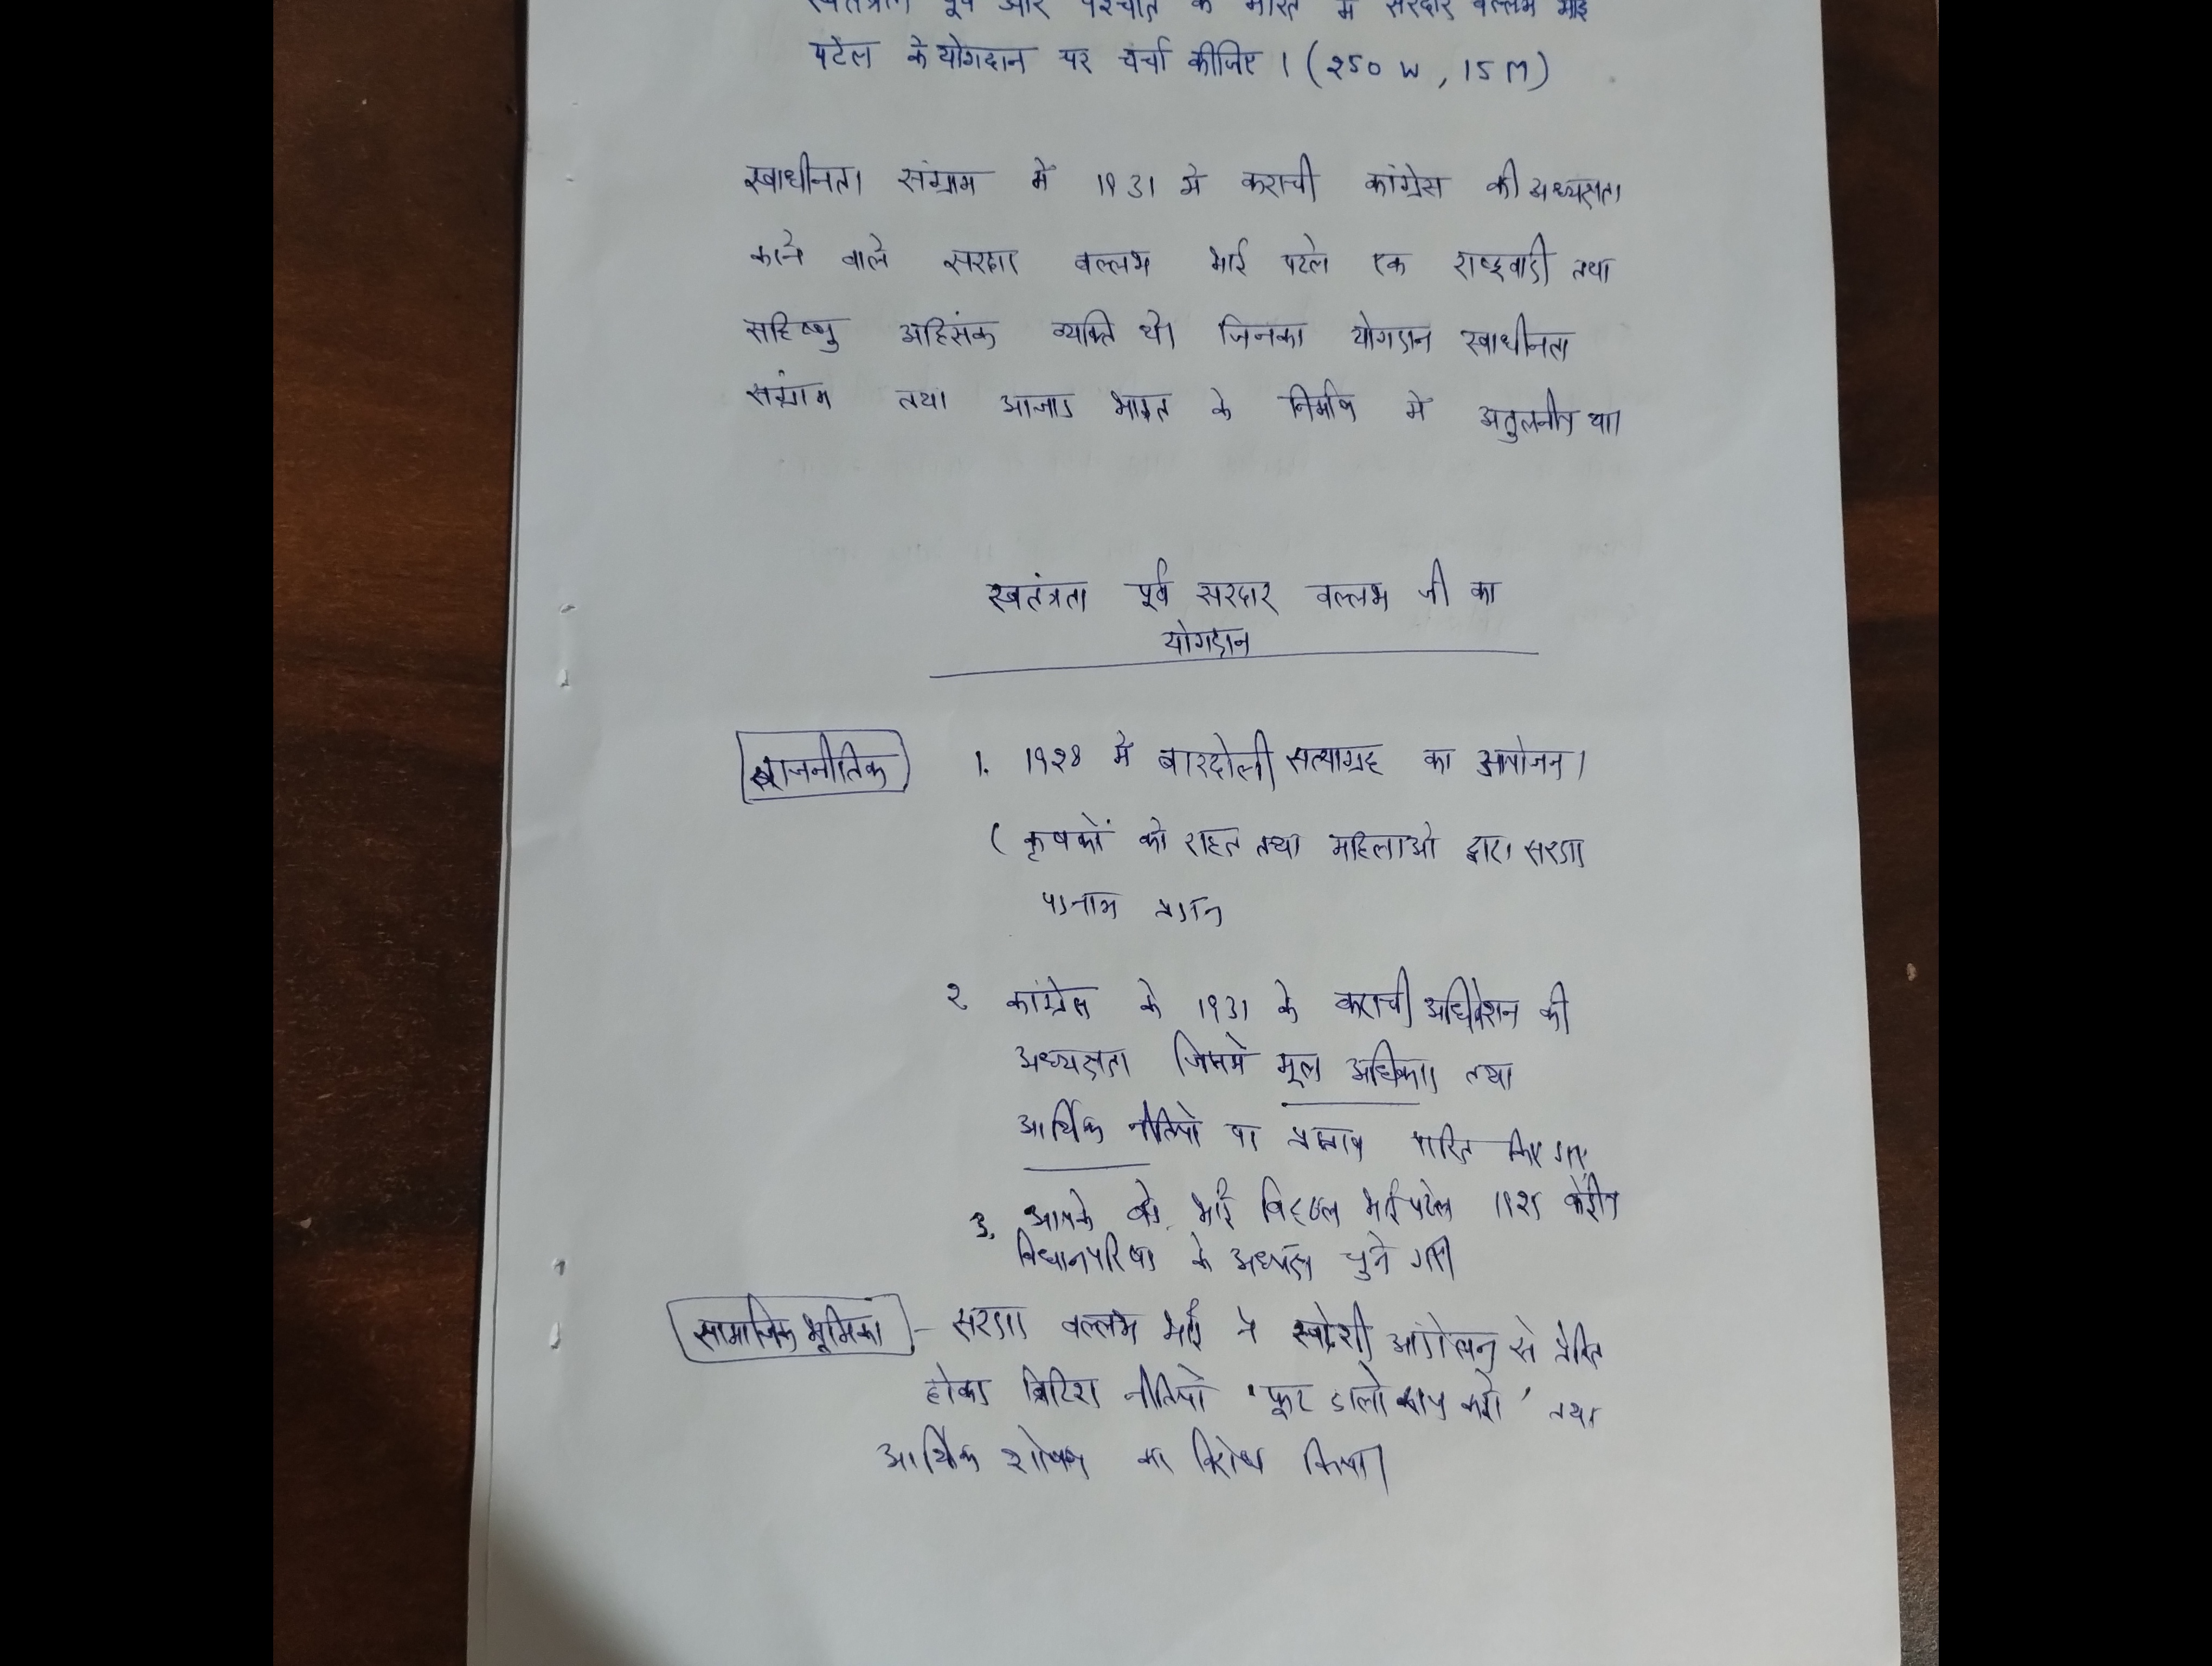 स्वतंत्रता पूर्व और पश्चात के भारत में सरदार वल्लभ भाई
पटेल के योगदान पर चर्चा कीजिए । (250 W, 15 M)
स्वाधीनता संग्राम में 1931 में कराची कांग्रेस की अध्यक्षता
करने वाले सरदार वल्लभ भाई पटेल एक राष्ट्रवादी तथा
सहिष्णु अहिंसक व्यक्ति थे। जिनका योगदान स्वाधीनता
संग्राम तथा आजाद भारत के निर्माण में अतुलनीय था।
स्वतंत्रता पूर्व सरदार वल्लभ जी का
योगदान
राजनीतिक
1. 1928 में बारदोली सत्याग्रह का आयोजन।
( कृषकों को राहत तथा महिलाओ द्वारा सरदार
पदनाम प्रदान
2 कांग्रेस के 1931 के कराची अधिवेशन की
अध्यक्षता जिसमे मूल अधिकार तथा
आर्थिक नीतियो पर प्रस्ताव पारित किए गए
3. आपके बड़े भाई विट्ठल भाई पटेल 1925 केंद्रीय
विधानपरिषद के अध्यक्ष चुने गए।
सामाजिक भूमिका - सरदार वल्लभ भाई ने स्वदेशी आंदोलन से प्रेरित
होकर ब्रिटिश नीतियो 'फूट डालो राज करो' तथा
आर्थिक शोषण का विरोध किया।